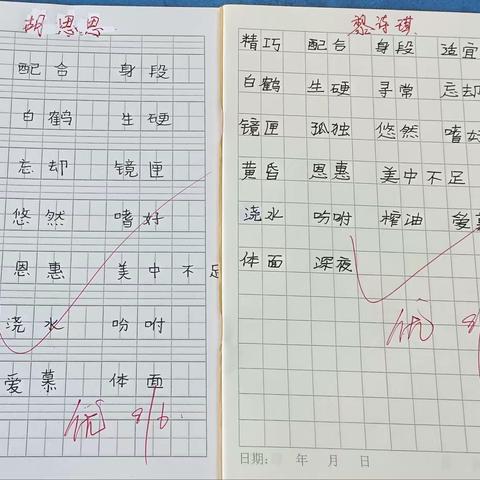 胡恩恩
配合 身段
白鹤 生硬
忘却 镜匣
悠然 嗜好
恩惠 美中不足
浇水 吩咐
爱慕 体面
优 9/6
黎诗琪
精巧 配合 身段 适宜
白鹤 生硬 寻常 忘却
镜匣 孤独 悠然 嗜好
黄昏 恩惠 美中不足
浇水 吩咐 榨油 爱慕
体面 深夜
优 9
日期: 年 月 日